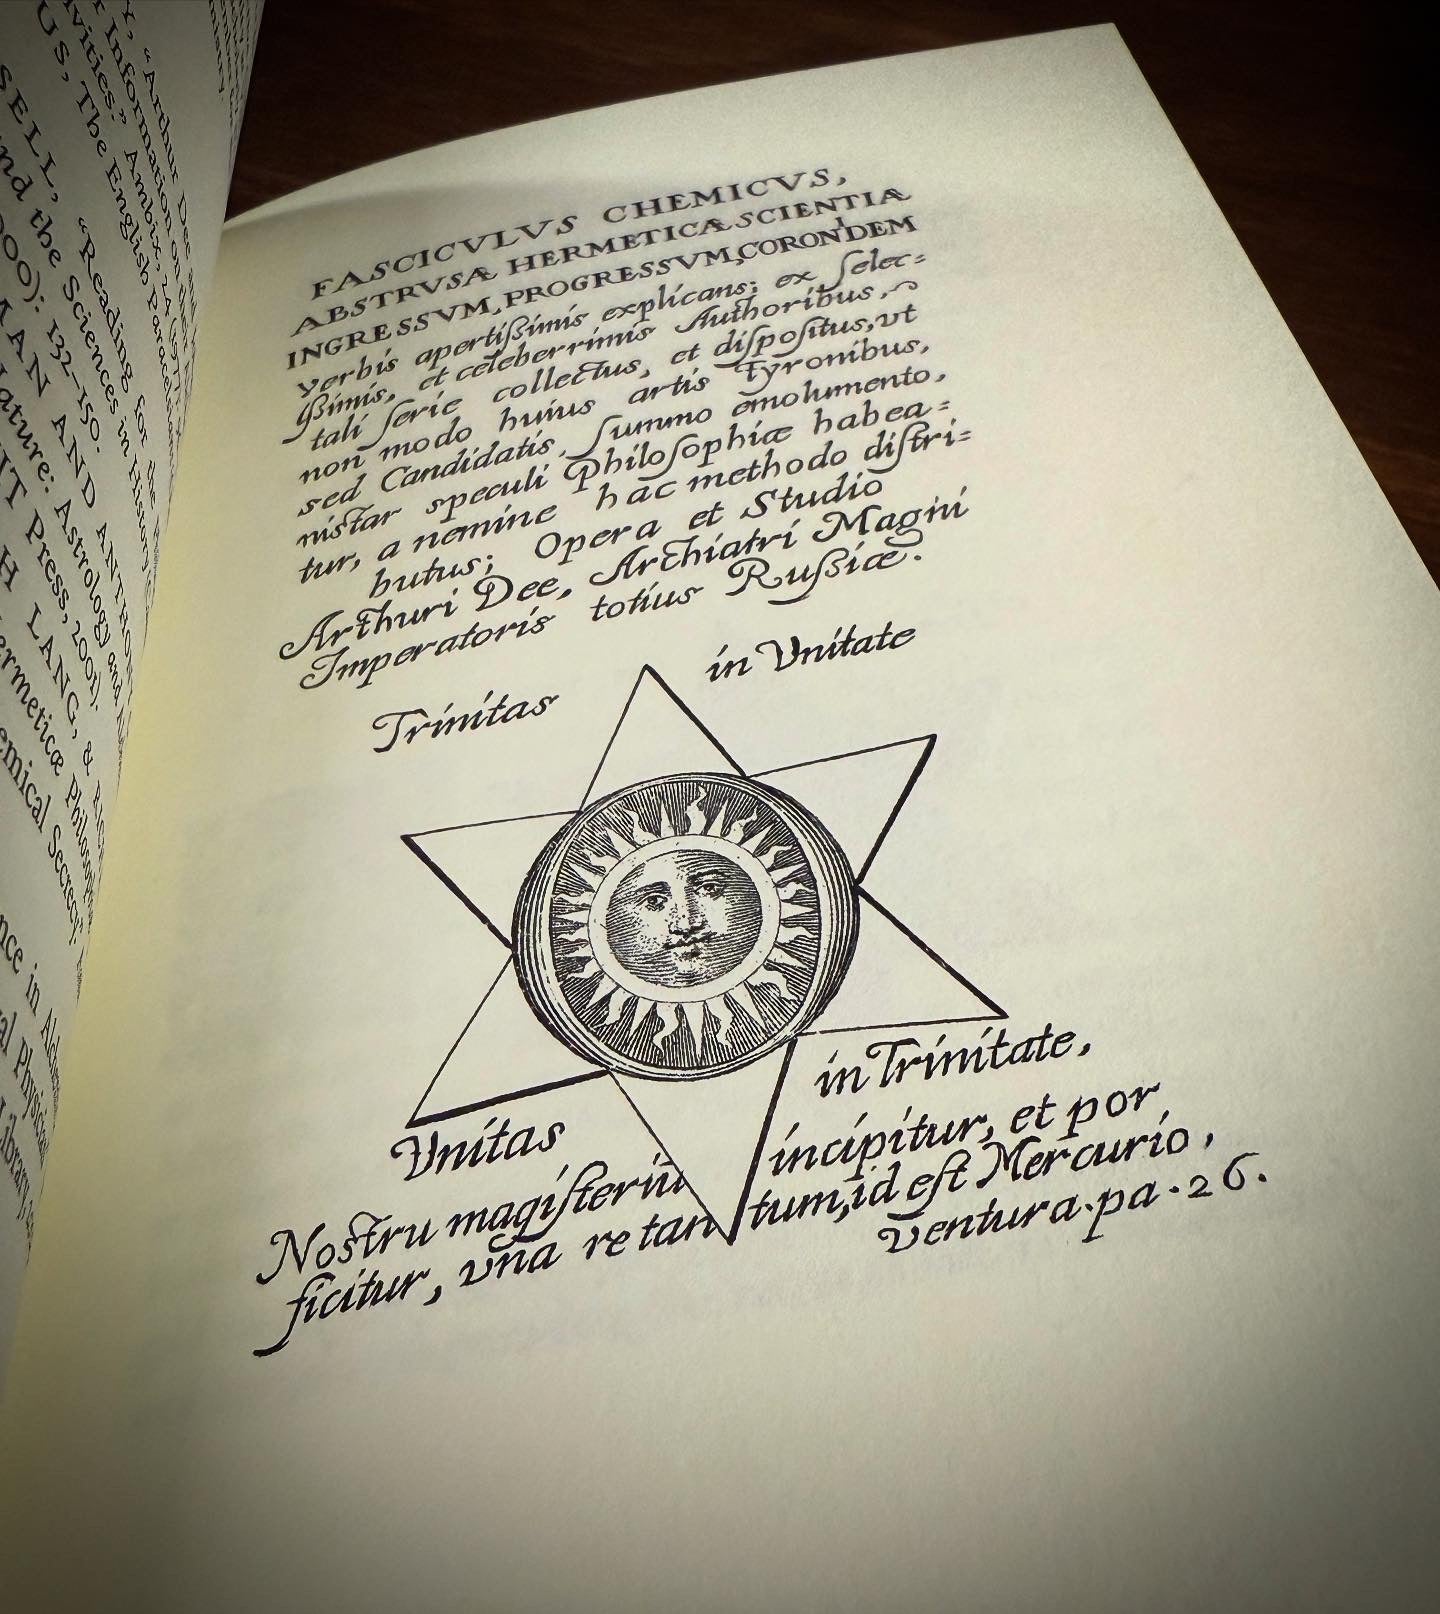 “Arthur Dee
Information on
Ambix, 24
The English
“Reading for the
and the Sciences in History
132–150.
AND
Astrology and
Press, 2001).
LANG, &
Secrecy.”
in
FASCICVLVS CHEMICVS,
ABSTRVSÆ HERMETICÆ SCIENTIÆ
INGRESSVM, PROGRESSVM, CORONIDEM
verbis apertißimis explicans; ex ſelec=
tißimis, et celeberrimis Authoribus,
tali ſerie collectus, et diſpoſitus, vt
non modo huius artis Tyronibus,
sed Candidatis, ſummo emolumento,
instar speculi Philoſophiæ habea=
tur, a nemine hac methodo diſtri=
butus; Opera et Studio
Arthuri Dee, Archiatri Magni
Imperatoris totius Rußiæ.
Trinitas in Vnitate
Vnitas in Trinitate,
Nostru magiſteriū incipitur, et per
ficitur, vna re tantum, id eſt Mercurio,
Ventura. pa. 26.